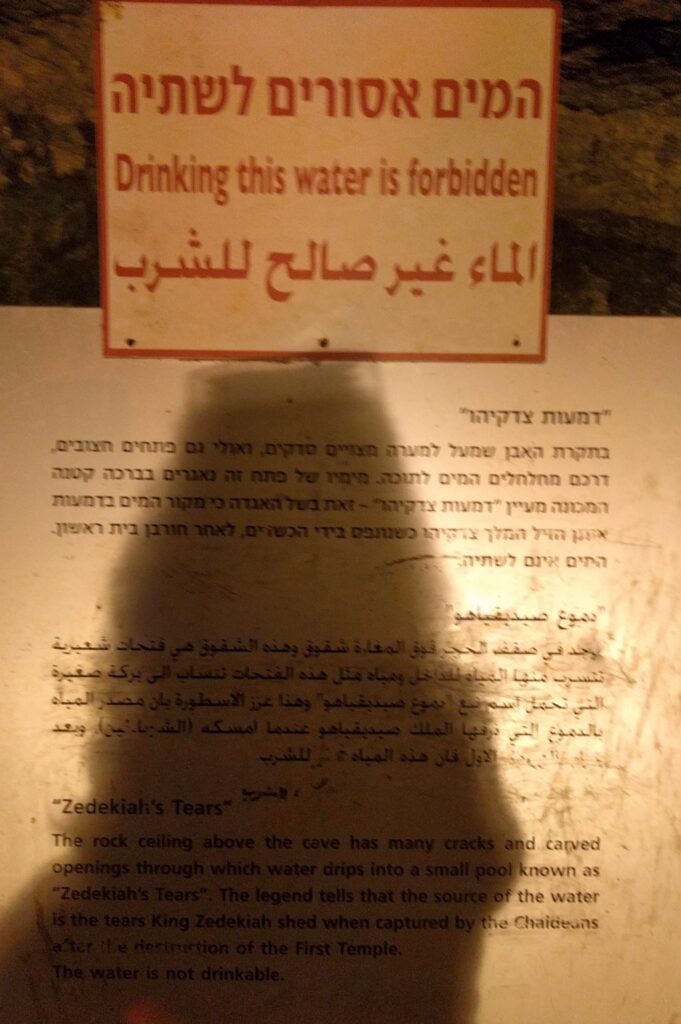 המים אסורים לשתיה
Drinking this water is forbidden
الماء غير صالح للشرب
"דמעות צדקיהו"
בתקרת האבן שמעל למערה מצויים סדקים, ואולי גם פתחים חצובים,
דרכם מחלחלים המים לתוכה. מימיו של פתח זה נאגרים בברכה קטנה
המכונה מעיין "דמעות צדקיהו" – זאת בשל האגדה כי מקור המים בדמעות
אותן הזיל המלך צדקיהו כשנתפס בידי הכשדים, לאחר חורבן בית ראשון.
המים אינם לשתיה.
"دموع صيديقياهو"
يوجد في سقف الحجر فوق المغارة شقوق وهذه الشقوق هي فتحات شعيرية
تتسرب منها المياه للداخل ومياه مثل هذه الفتحات تنساب الى بركة صغيرة
التي تحمل اسم نبع "دموع صيديقياهو" وهذا عزز الاسطورة بان مصدر المياه
بالدموع التي ذرفها الملك صيديقياهو عندما امسكه وبعد
الاول فان هذه المياه للشرب.
للشرب
"Zedekiah's Tears"
The rock ceiling above the cave has many cracks and carved
openings through which water drips into a small pool known as
"Zedekiah's Tears". The legend tells that the source of the water
is the tears King Zedekiah shed when captured by the Chaldeans
after the destruction of the First Temple.
The water is not drinkable.